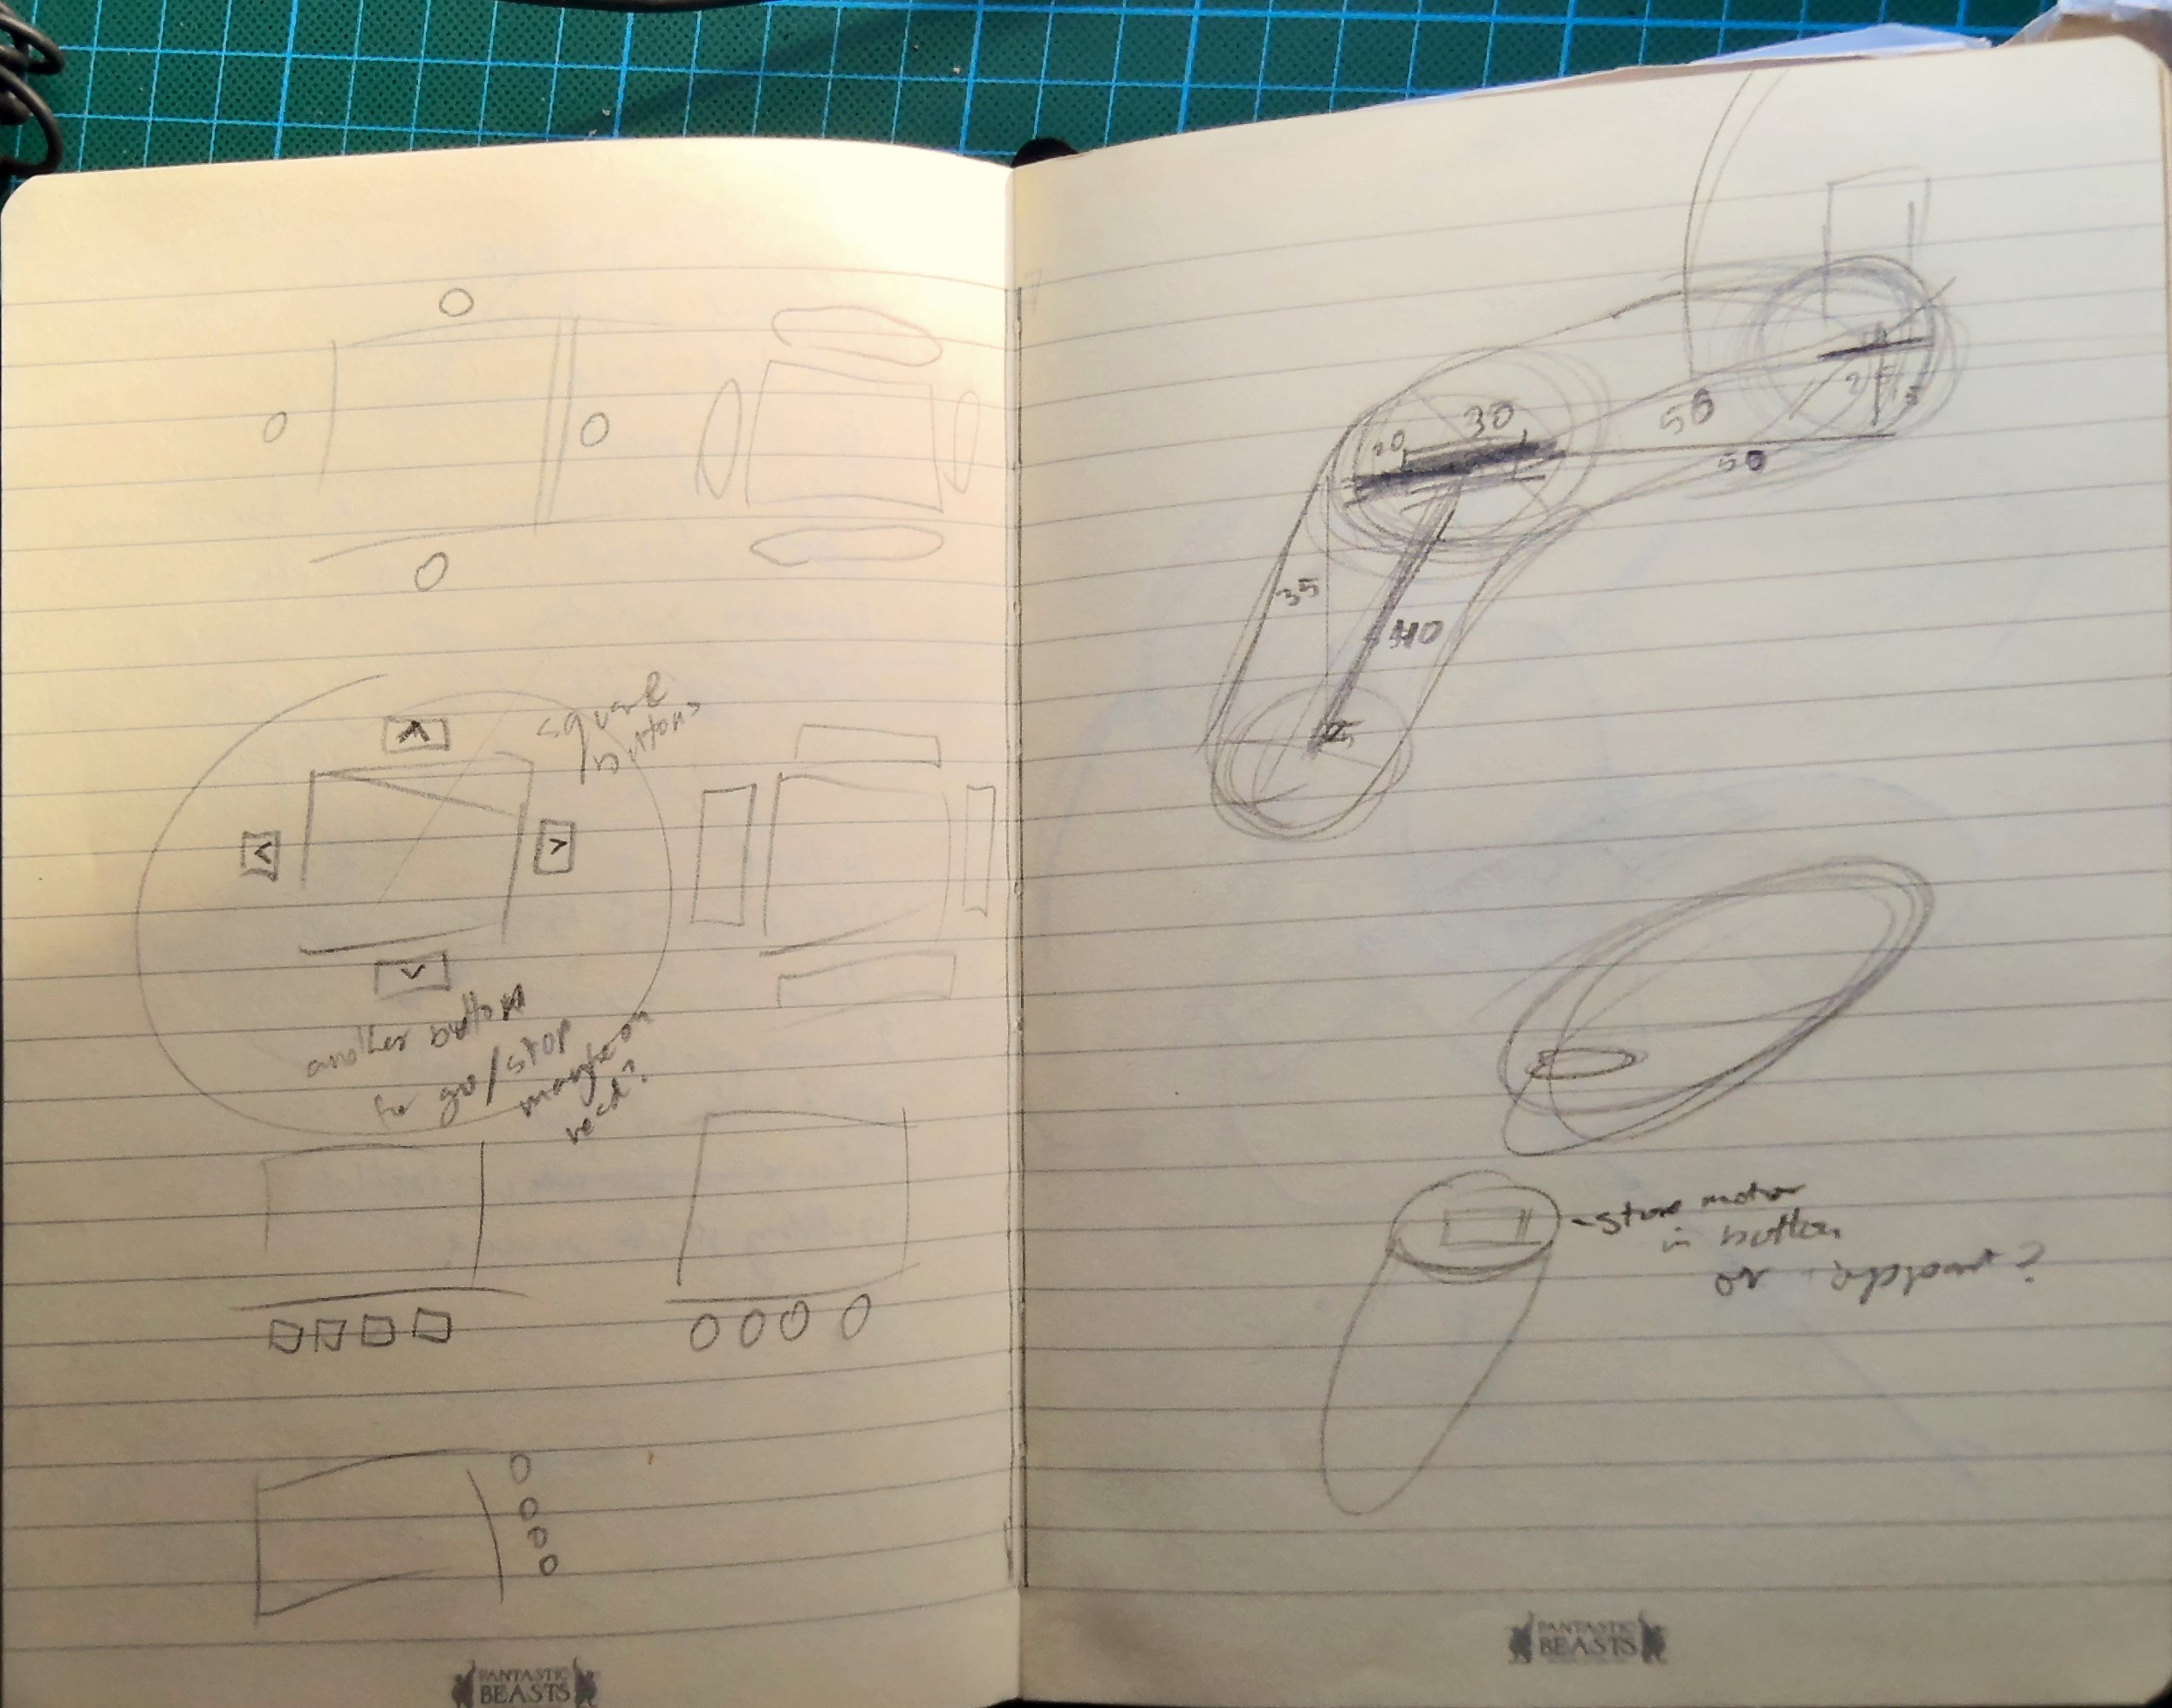 square
buttons
another button
for go/stop
maybe on
FANTASTIC
BEASTS
30
20
50
50
25
15
35
40
25
-store motor
in button
or
FANTASTIC
BEASTS